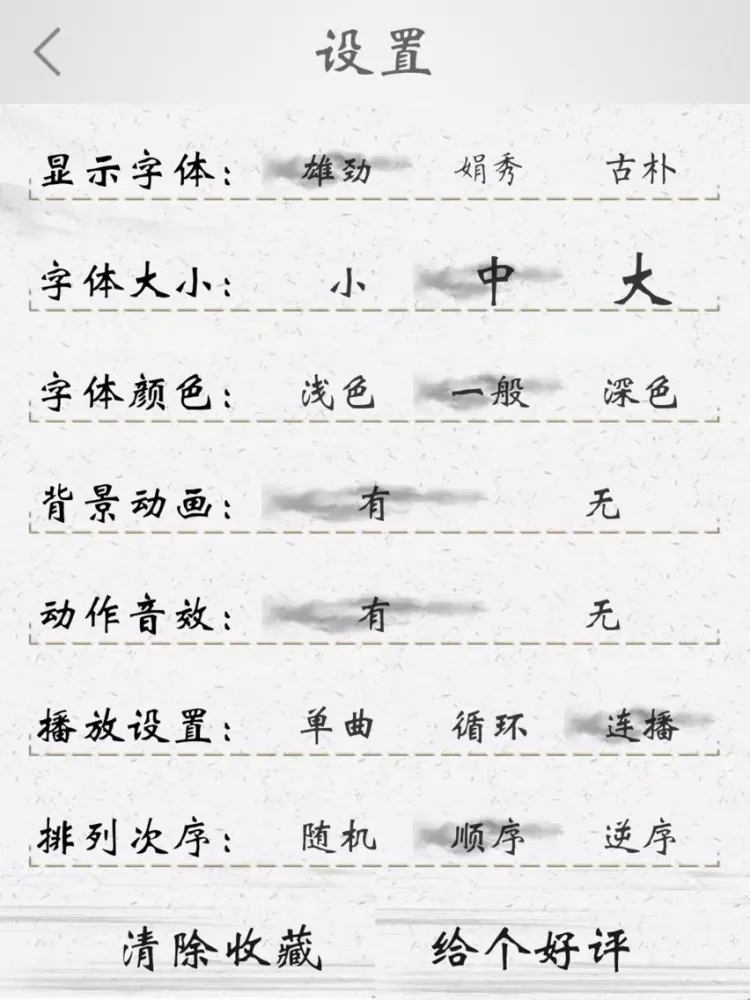 设置
显示字体： 雄劲 娟秀 古朴
字体大小： 小 中 大
字体颜色： 浅色 一般 深色
背景动画： 有 无
动作音效： 有 无
播放设置： 单曲 循环 连播
排列次序： 随机 顺序 逆序
清除收藏 给个好评